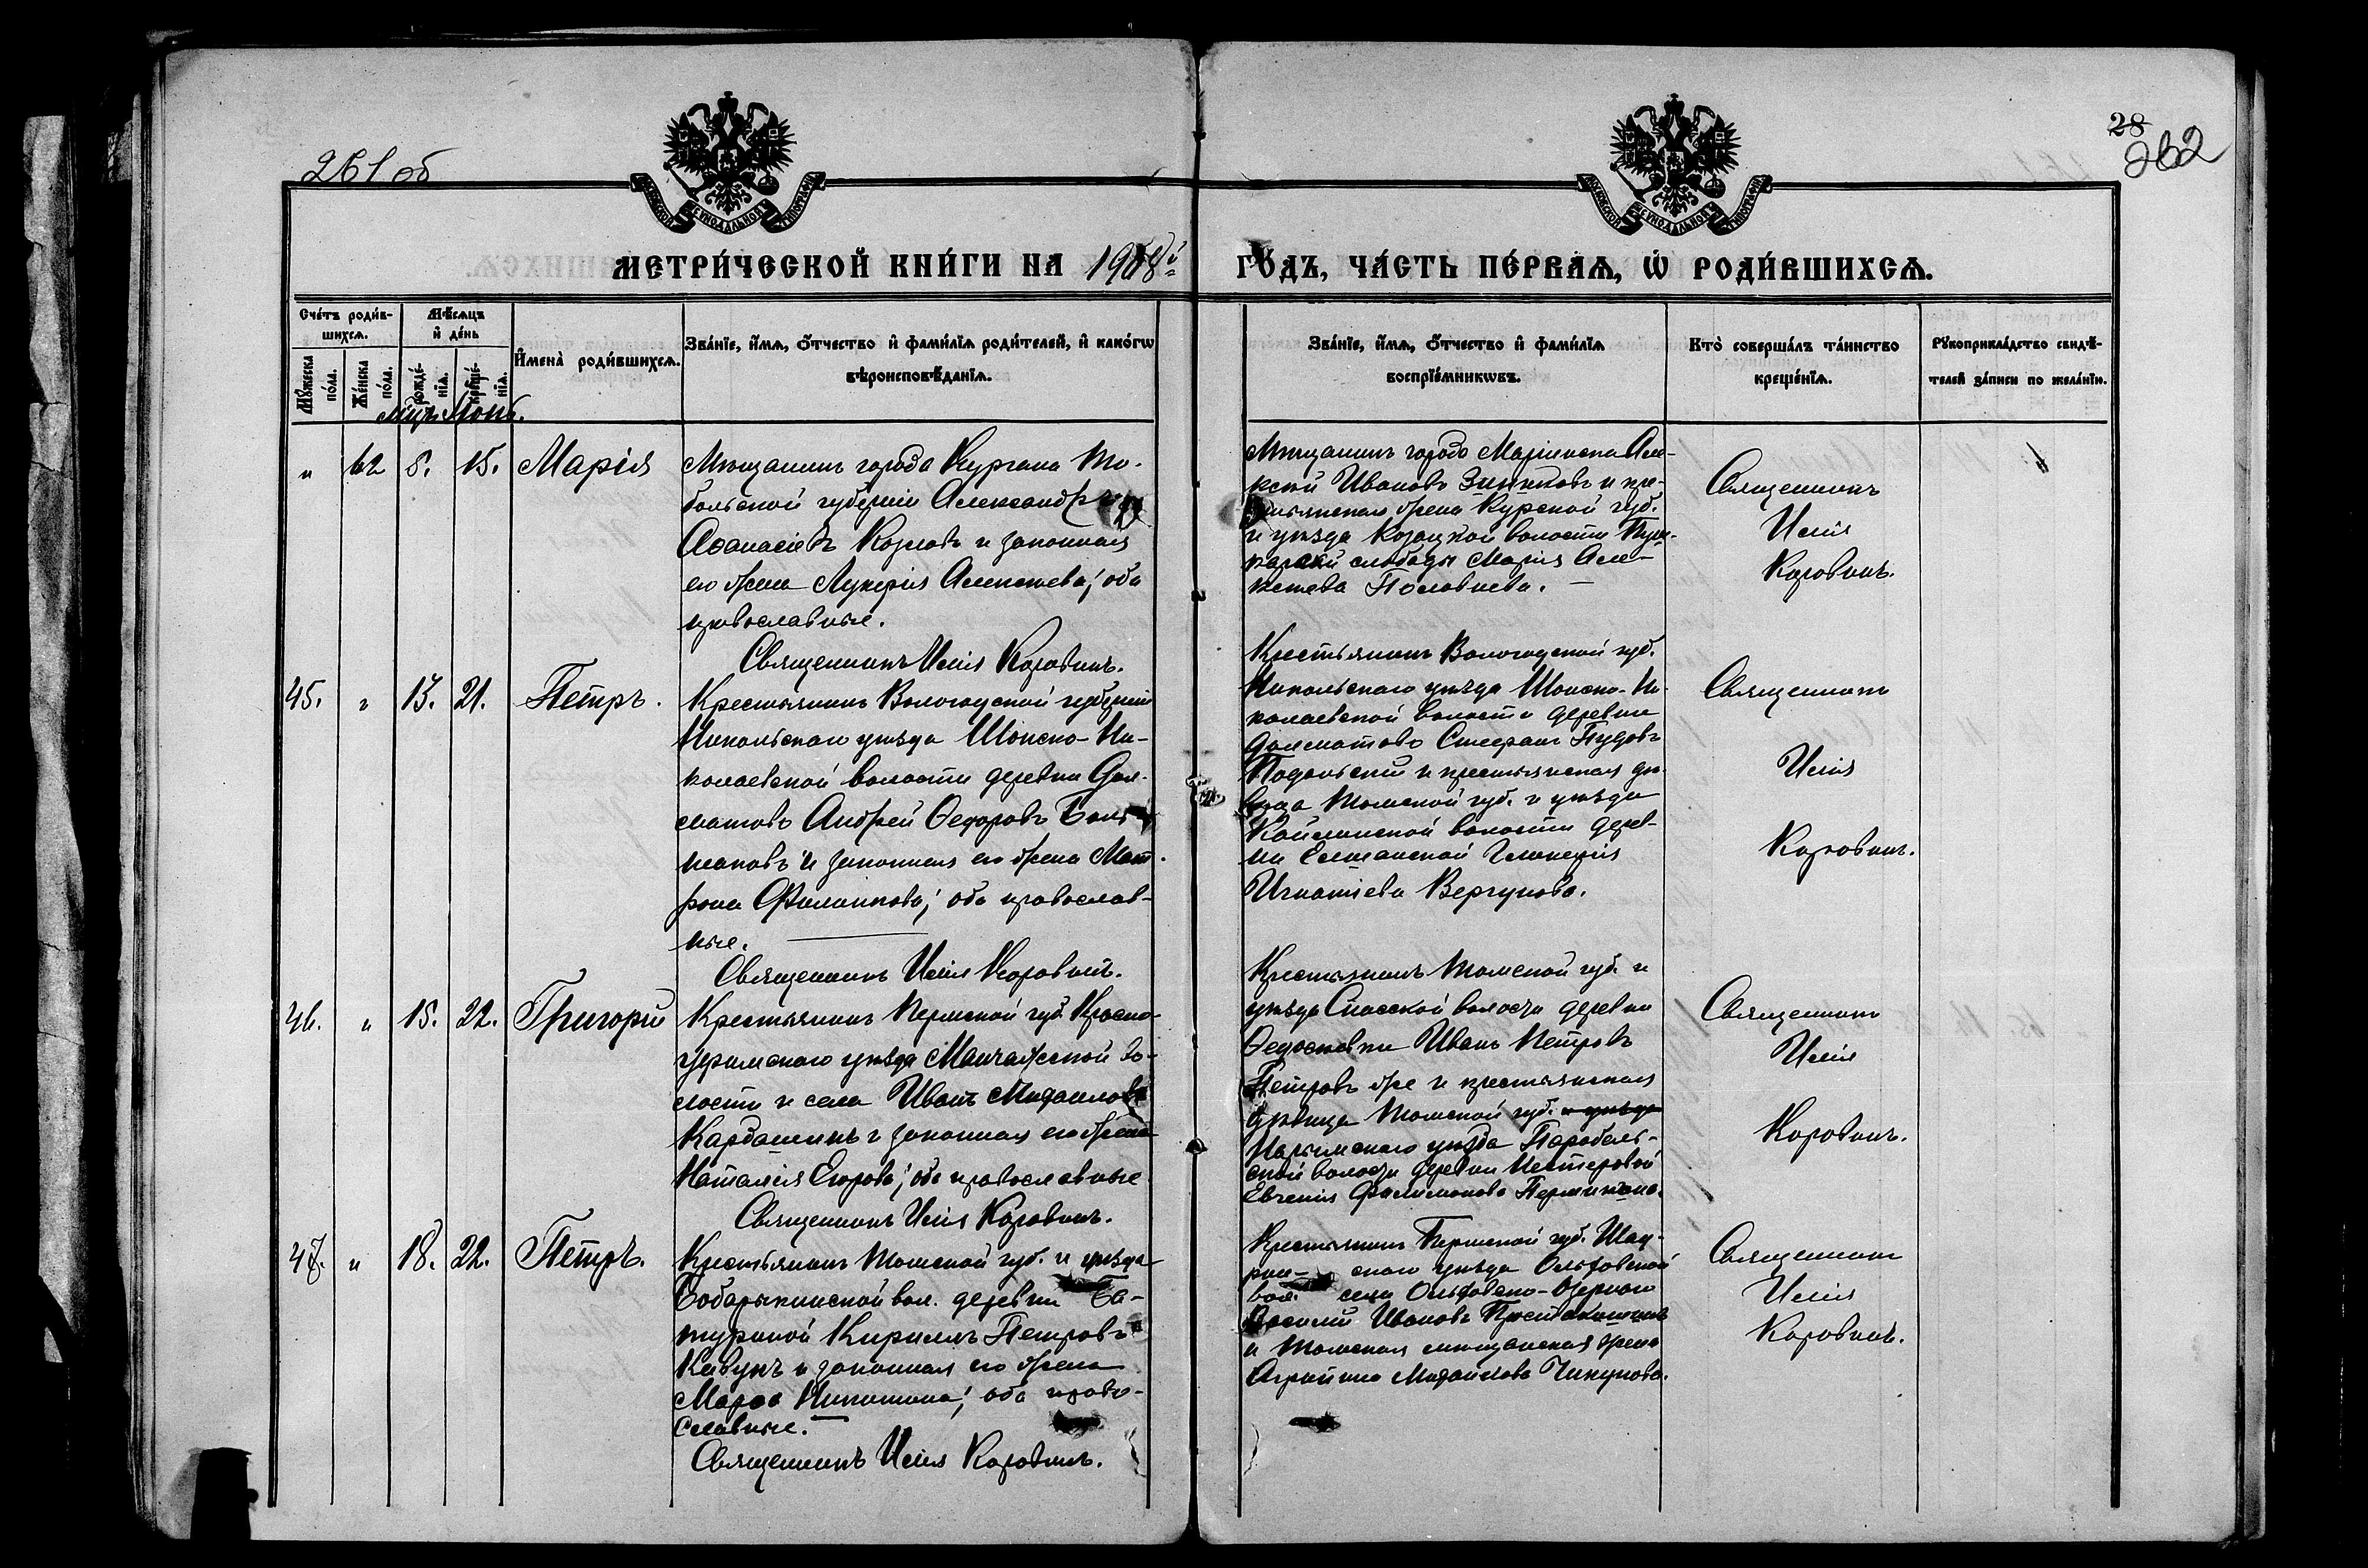 261 об
28
262
МОСКОВСКОЙ СѴНОДАЛЬНОЙ ТИПОГРАФІИ
МОСКОВСКОЙ СѴНОДАЛЬНОЙ ТИПОГРАФІИ
МЕТРИ́ЧЕСКОЙ КНИ́ГИ НА 1908й
ГО́ДЪ, ЧА́СТЬ ПЕ́РВАѦ, Ѡ҆ РОДИ́ВШИХСѦ.
Сче́тъ роди́в-
шихсѧ.
Мꙋ́жеска по́ла.
Же́нска по́ла.
Мѣ́сѧцъ
и҆ де́нь
рожде́-нїѧ.
креще́-нїѧ.
И҆мена̀ роди́вшихсѧ.
Зва́нїе, и҆́мѧ, ѻ҆́тчество и҆ фами́лїѧ роди́телей, и҆ како́гѡ
вѣроисповѣ́данїѧ.
Зва́нїе, и҆́мѧ, ѻ҆́тчество и҆ фами́лїѧ
воспрїе́мникѡвъ.
Кто̀ соверша́лъ та́инство
креще́нїѧ.
Рꙋкоприкла́дство свидѣ́-
телей за́писи по жела́нїю.
Мцъ Іюнь.
"
62
8.
15.
Марія
Мѣщанинъ города Кургана То-
больской губерніи Александръ
Аѳанасіевъ Козловъ и законная
его жена Лукерія Алексѣева; оба
православные.
Священникъ Исаія Коровинъ.
Мѣщанинъ города Маріинска Але-
ксѣй Ивановъ Зинковъ и кре-
стьянская жена Курской губ.
и уѣзда Козацкой волости Пуш-
карской слободы Марія Але-
ксѣева Половнева.
Священникъ
Исаія
Коровинъ.
45.
"
13.
21.
Петръ.
Крестьянинъ Вологодской губерніи
Никольскаго уѣзда Шонско-Ни-
колаевской волости деревни Дол-
матово Андрей Ѳедоровъ
и законная его жена Мат-
рона Филиппова; оба православ-
ные.
Священникъ Исаія Коровинъ.
Крестьянинъ Вологодской губ.
Никольскаго уѣзда Шонско-Ни-
колаевской волости деревни
Долматово Стефанъ Пудовъ
Подольскій и крестьянская дѣ-
вица Томской губ. и уѣзда
волости дерев-
ни Гликерія
Игнатіева Вергунова.
Священникъ
Исаія
Коровинъ.
46.
"
15.
22.
Григорій
Крестьянинъ Пермской губ. Красно-
уфимскаго уѣзда Манчажской во-
лости и села Иванъ Михаиловъ
Кардашинъ и законная его жена
Наталія Егорова; оба православные
Священникъ Исаія Коровинъ.
Крестьянинъ Томской губ. и
уѣзда Спасской волости деревни
Ѳедосѣевки Иванъ Петровъ
Петровъ же и крестьянская
дѣвица Томской губ. и уѣзда
Нарымскаго уѣзда Парабель-
ской волости деревни Нестеровой
Евгенія Филимонова Пермикова.
Священникъ
Исаія
Коровинъ.
47.
"
18.
22.
Петръ.
Крестьянинъ Томской губ. и уѣзда
Бобарыкинской вол. деревни Ба-
туриной Кириллъ Петровъ
Кавунъ и законная его жена
Марѳа Никитина; оба право-
славные.
Священникъ Исаія Коровинъ.
Крестьянинъ Пермской губ. Шад-
рин- скаго уѣзда Ольховской
вол. села Ольховско-Озернаго
Василій Ивановъ
и Томская мѣщанская жена
Агрипина Михайлова Чикунова.
Священникъ
Исаія
Коровинъ.